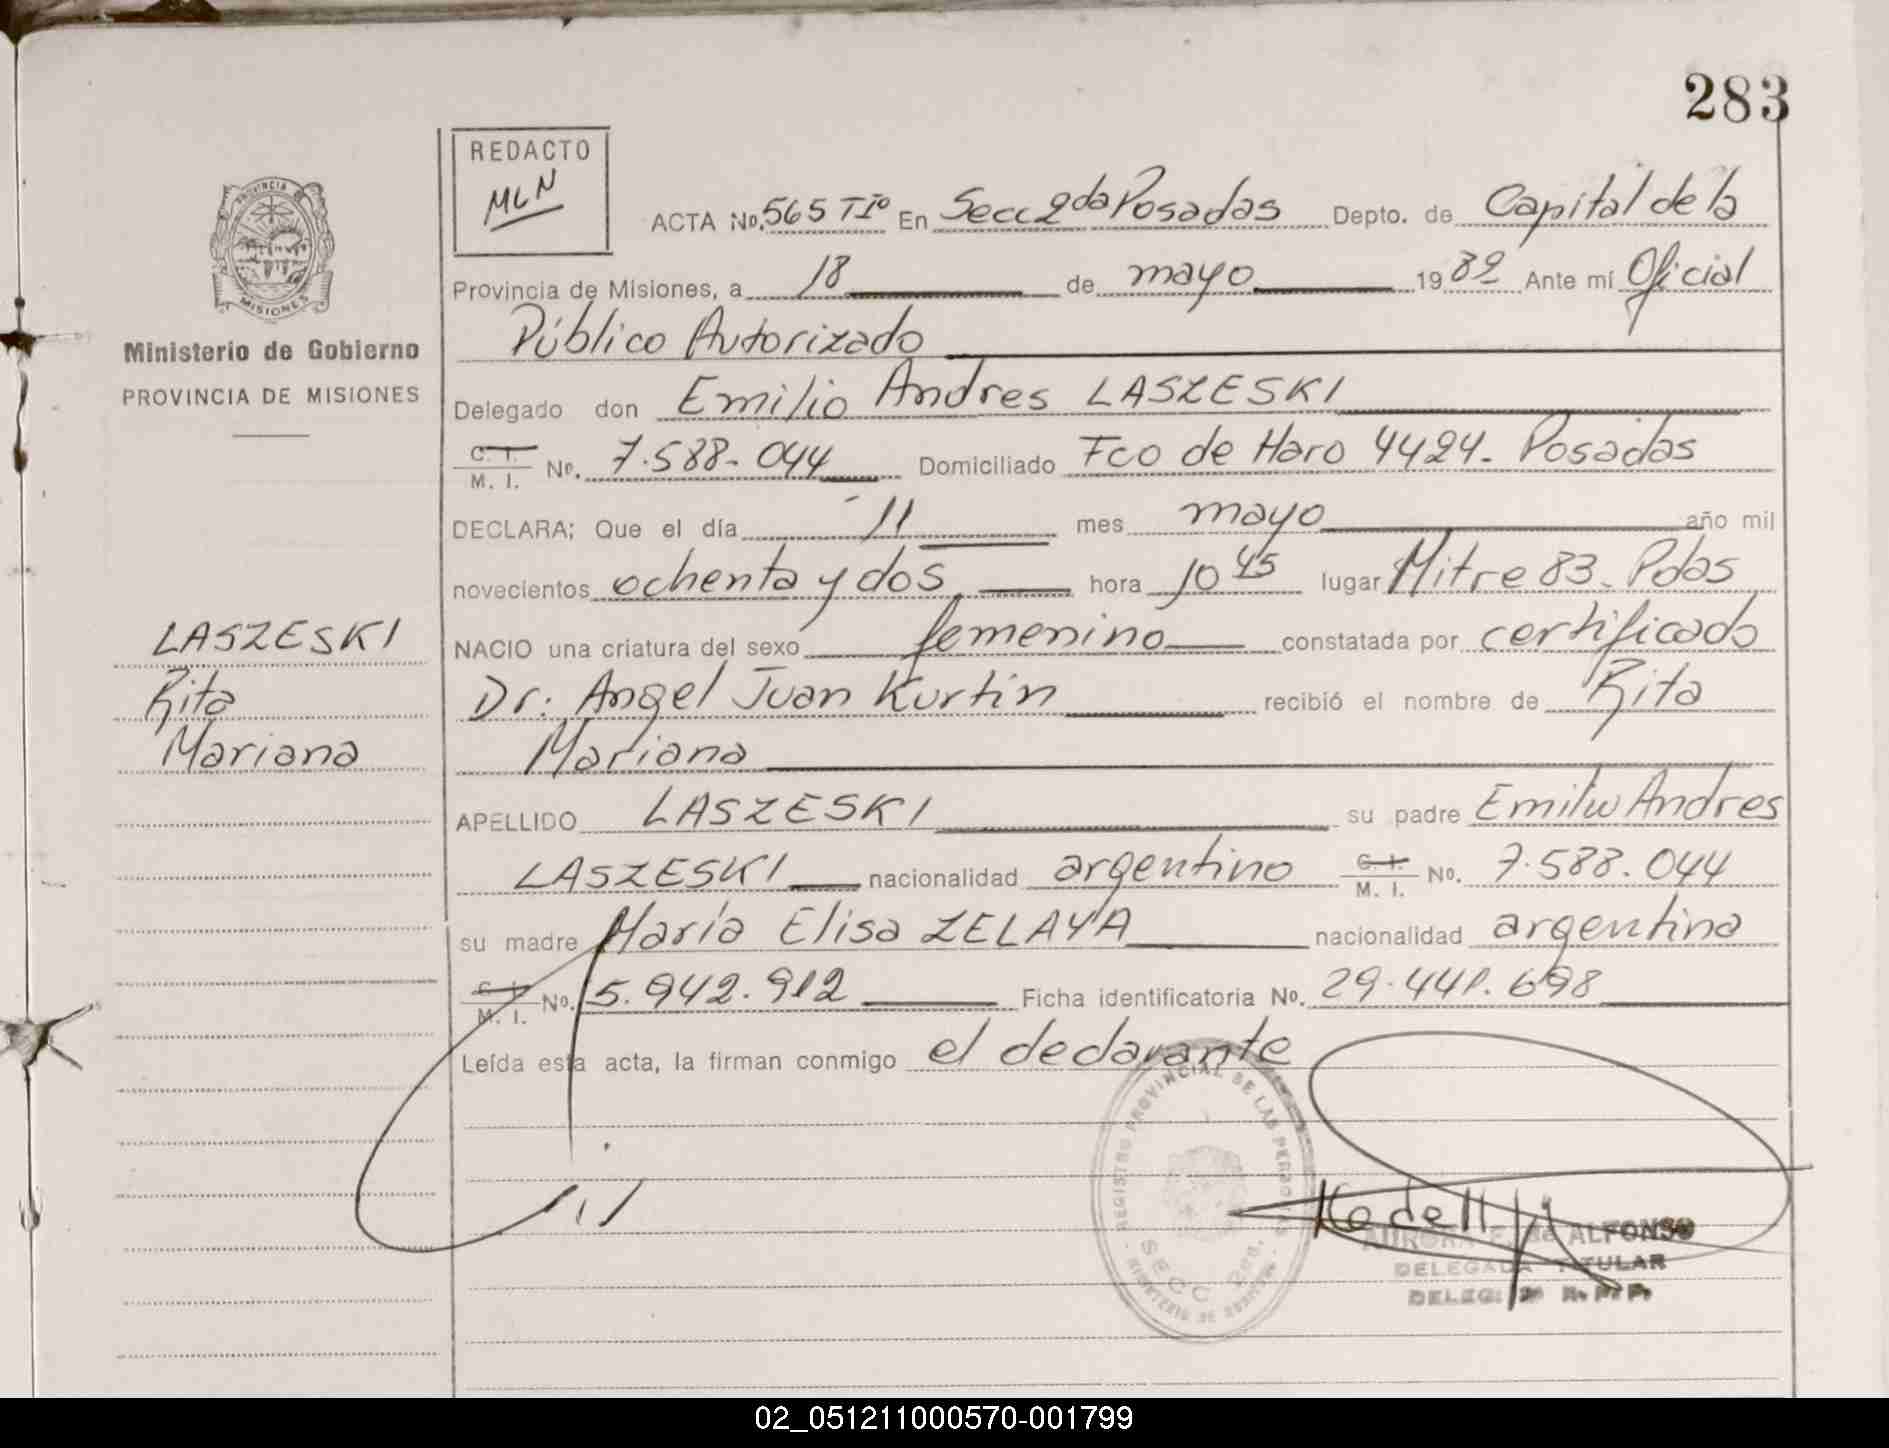 283
REDACTO
MLN
PROVINCIA
MISIONES
Ministerio de Gobierno
PROVINCIA DE MISIONES
LASZESKI
Rita
Mariana
ACTA No. 565 TIº En Secc 2da Posadas Depto. de Capital de la
Provincia de Misiones, a 18 de mayo 1982 Ante mí Oficial
Público Autorizado
Delegado don Emilio Andres LASZESKI
C. I. M. I. No. 7.588.044 Domiciliado Fco de Haro 4424. Posadas
DECLARA; Que el día 11 mes mayo año mil
novecientos ochenta y dos hora 10 45 lugar Mitre 83. Pdas
NACIO una criatura del sexo femenino constatada por certificado
Dr. Angel Juan Kurtin recibió el nombre de Rita
Mariana
APELLIDO LASZESKI su padre Emilio Andres
LASZESKI nacionalidad argentino C. I. M. I. No. 7.588.044
su madre María Elisa ZELAYA nacionalidad argentina
C. I. M. I. No. 5.942.912 Ficha identificatoria No. 29.441.698
Leída esta acta, la firman conmigo el declarante
REGISTRO PROVINCIAL DE LAS PERSONAS
SECC 2da.
MINISTERIO DE GOBIERNO
AURORA F. de ALFONSO
DELEGADA TITULAR
DELEG. 2ª R. P. P.
02_051211000570-001799